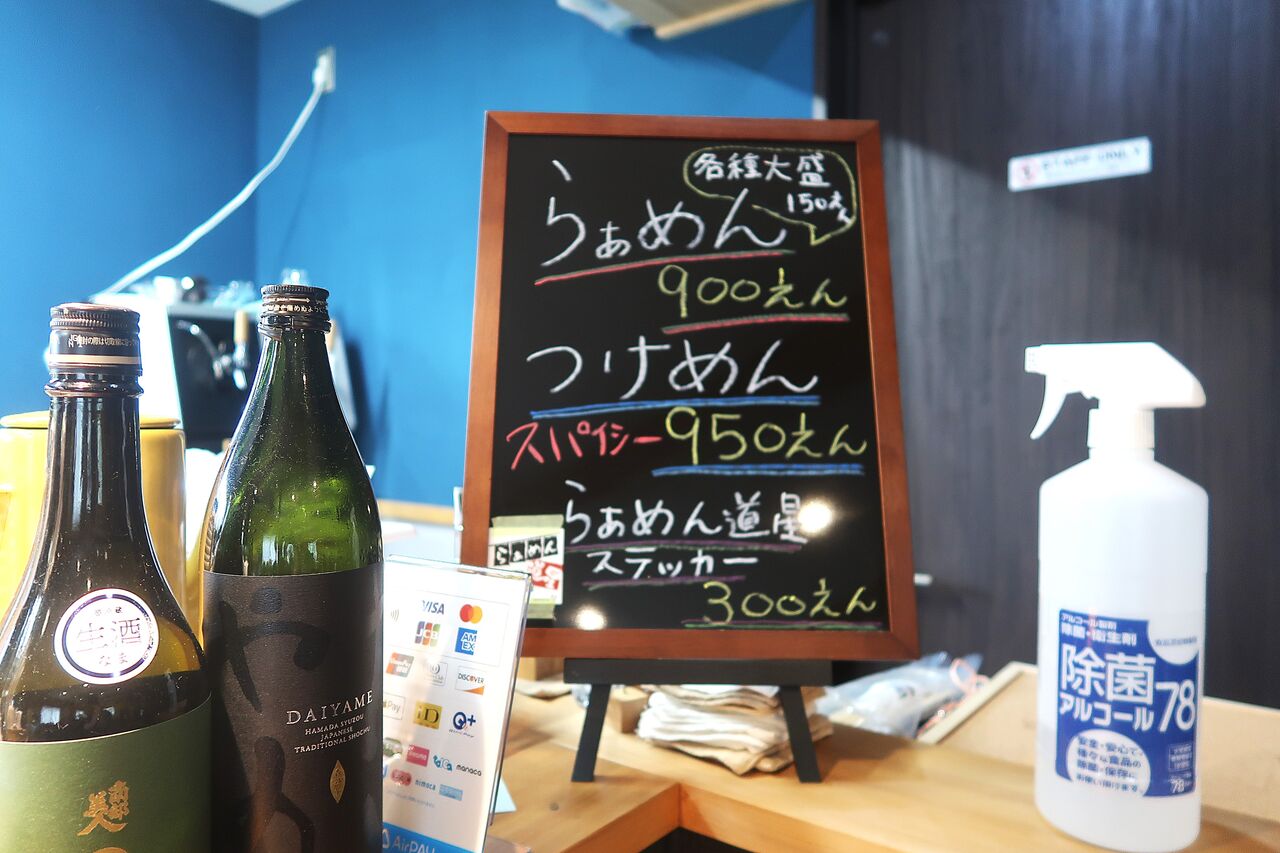 各種大盛
150えん
らぁめん
900えん
つけめん
スパイシー 950えん
らぁめん道星
ステッカー
300えん
らぁめん
生酒
なま
DAIYAME
HAMADA SYUZOU
JAPANESE
TRADITIONAL SHOCHU
VISA
JCB
AM
EX
DISCOVER
Pay
iD
Q+
manaca
nimoca
AirPAY
STAFF ONLY
アルコール製剤
除菌・衛生剤
除菌
アルコール78
安全・安心で、
様々な食品の
除菌・保存に
お使い頂けます
78